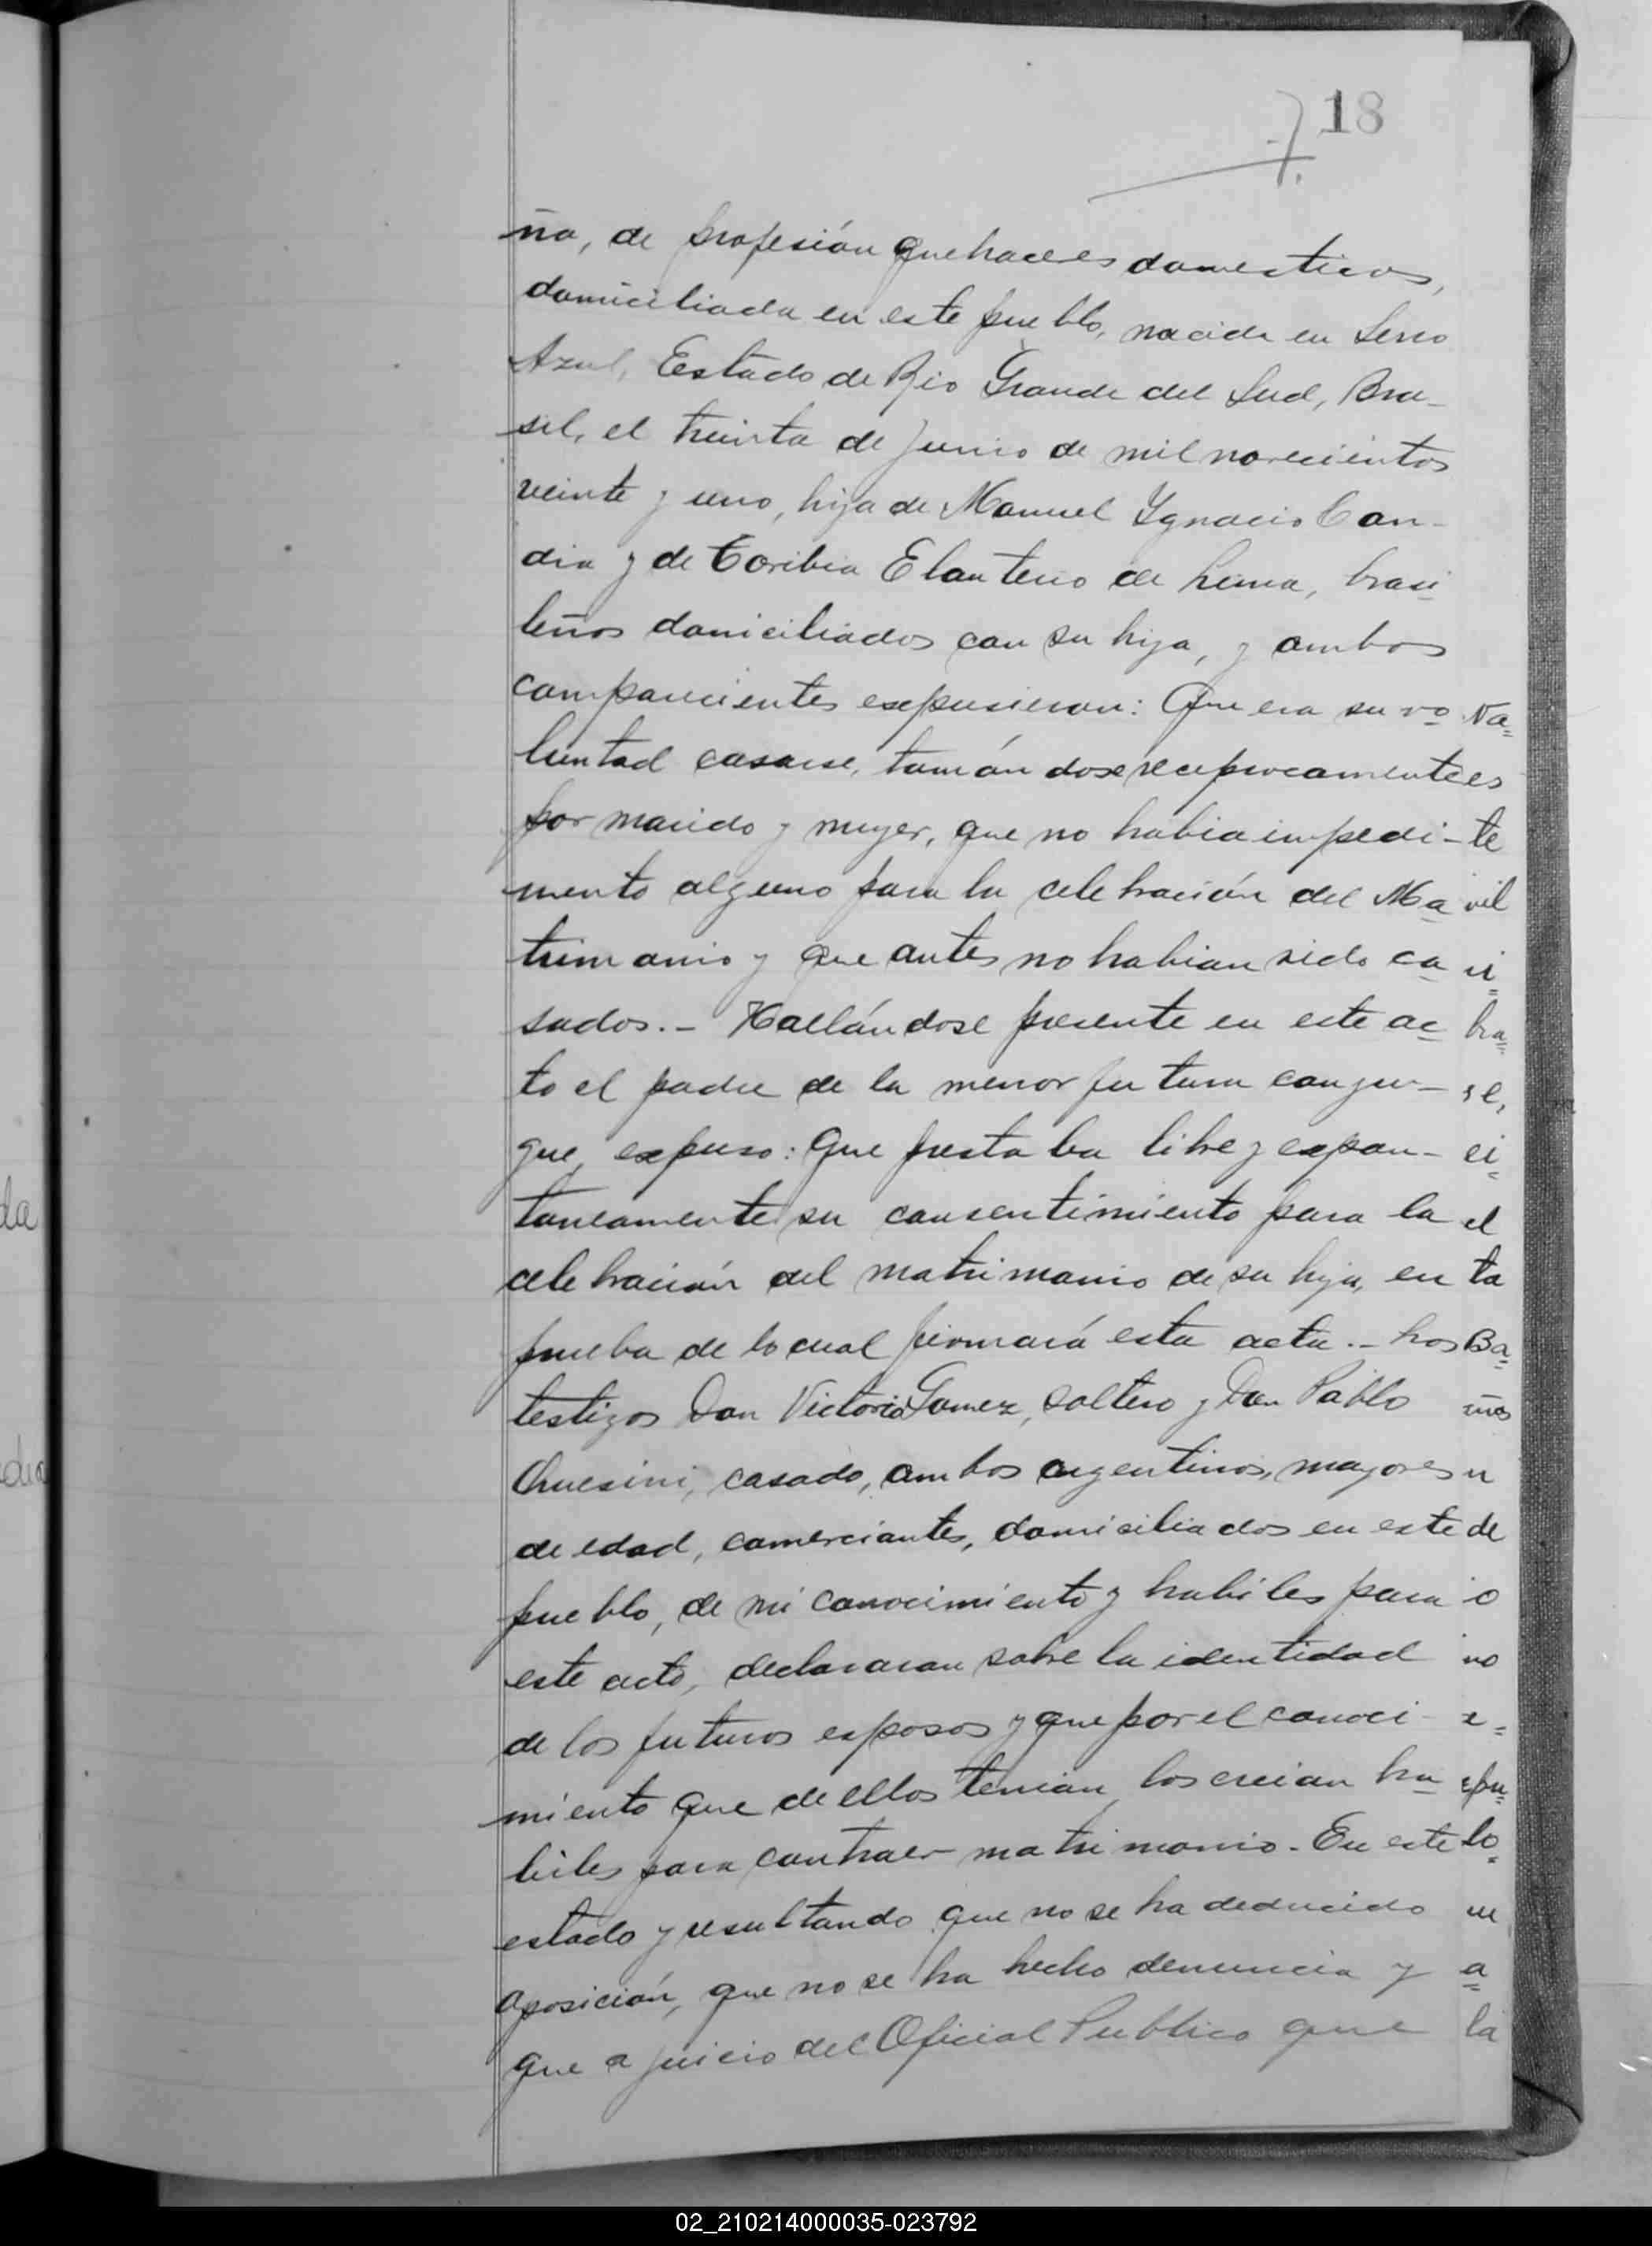 18
7.
ña, de profesión quehaceres domesticos,
domiciliada en este pueblo, nacida en Serro
Azul, Estado de Rio Grande del Sud, Bra-
sil, el treinta de Junio de mil novecientos
veinte y uno, hija de Manuel Ygnacio Can-
dia y de Toribia Elauterio de Lima, brasi
leños domiciliados con su hija, y ambos
comparecientes expusieron: Que era su vo Na
luntad casarse, tomándose reciprocamente es
por marido y mujer, que no habia impedi- te
mento alguno para la celebración del Ma vil
trimonio y que antes no habian sido ca
sados.- Hallándose presente en este ac bra
to el padre de la menor futura conyu- se,
gue, expuso: Que prestaba libre y expon- ci
taneamente su consentimiento para la el
celebración del matrimonio de su hija, en ta
prueba de lo cual firmará esta acta.- Los Ba
testigos Don Victorio Gomez, soltero y Don Pablo ños
casado, ambos argentinos, mayores u
de edad, comerciantes, domiciliados en este de
pueblo, de mi conocimiento y habiles para o
este acto, declararan sobre la identidad no
de los futuros esposos y que por el conoci-
miento que de ellos tenian, los creian ha epu
biles para contraer matrimonio.- En este lo
estado y resultando que no se ha deducido
oposición, que no se ha hecho denuncia y a
que a juicio del Oficial Publico que la
da
dia
02_210214000035-023792